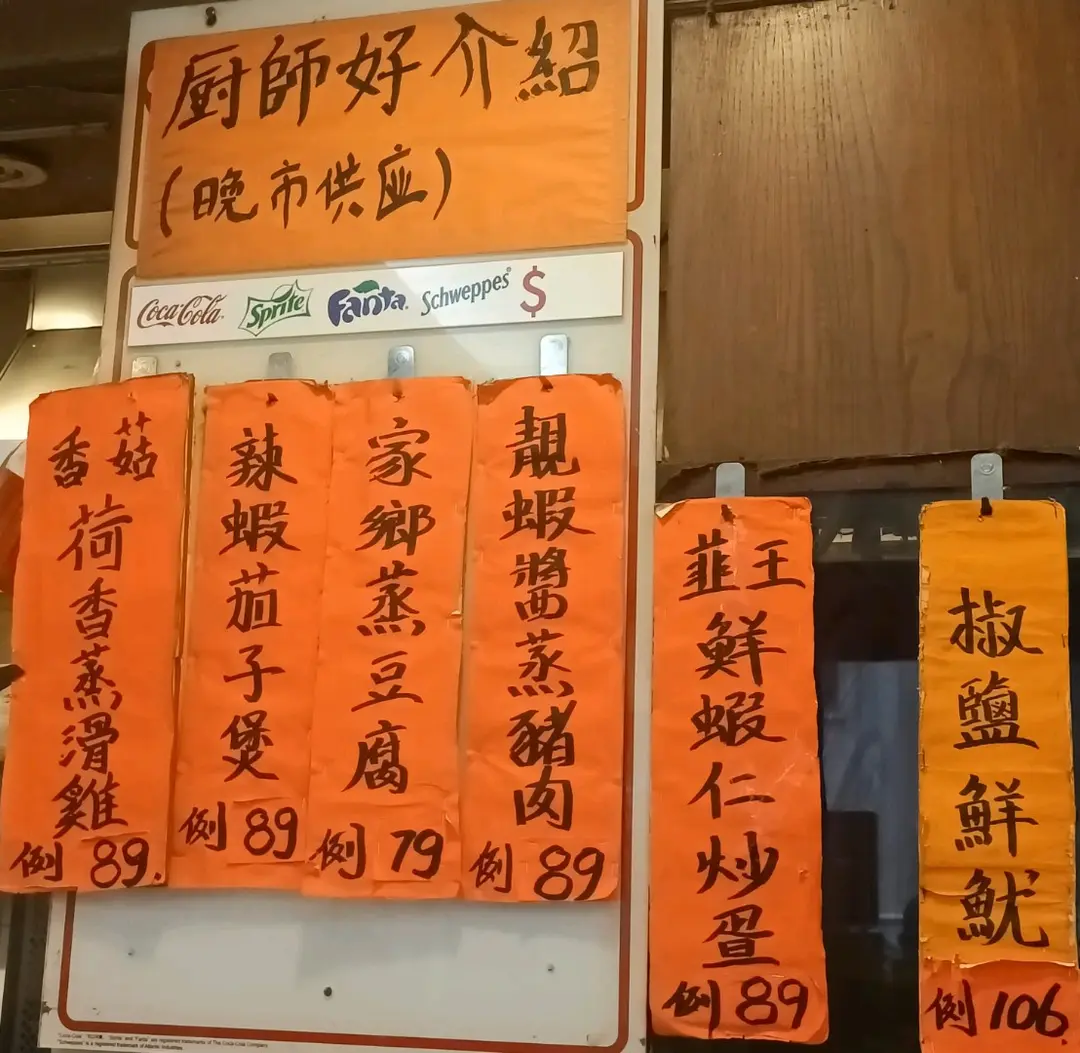 厨師好介紹
(晚市供应)
Coca-Cola Sprite Fanta Schweppes $
香菇荷香蒸滑雞
例 89.
辣蝦茄子煲
例 89
家鄉蒸豆腐
例 79
靚蝦醬蒸豬肉
例 89
韮王鮮蝦仁炒蛋
例 89
椒鹽鮮魷
例 106.